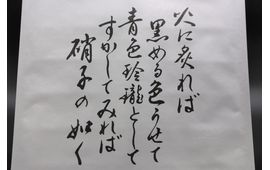 火に炙れば
黒める色うせて
青色玲瓏として
すかしてみれば
硝子の如く